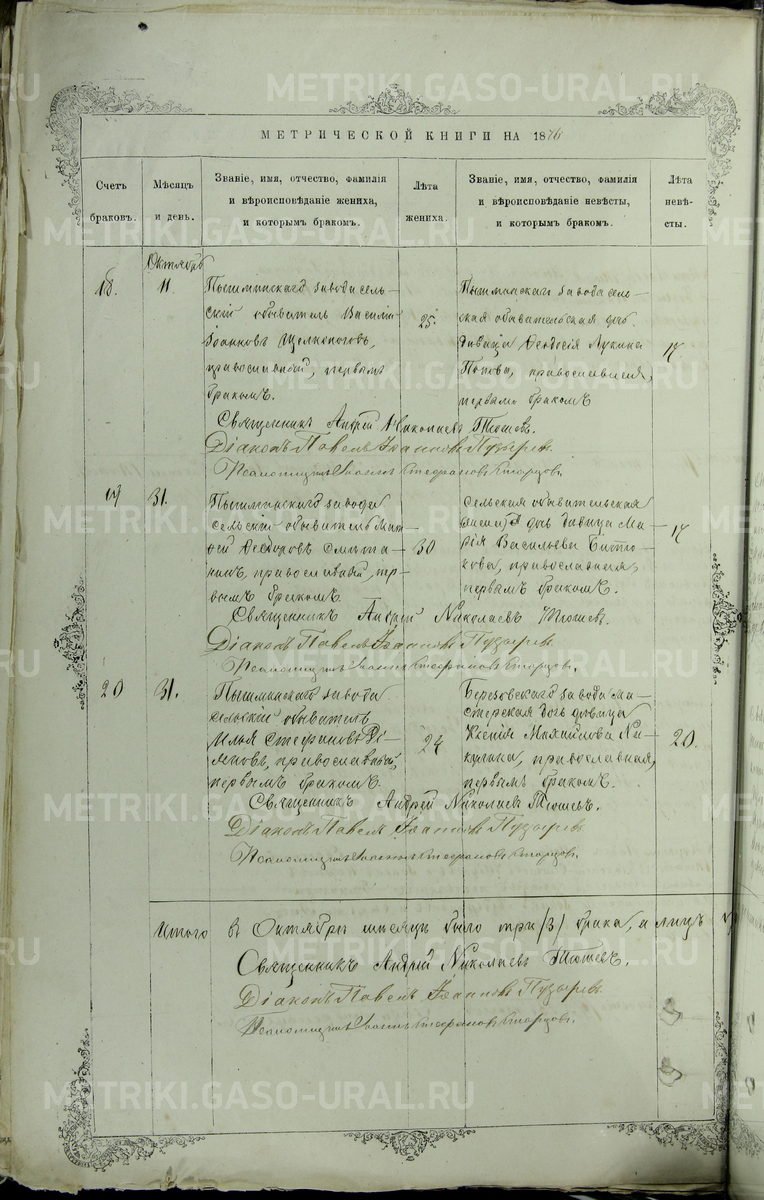 МЕТРИЧЕСКОЙ КНИГИ НА 1876
Счетъ браковъ.
Мѣсяцъ и день.
Званіе, имя, отчество, фамилія
и вѣроисповѣданіе жениха,
и которымъ бракомъ.
Лѣта жениха.
Званіе, имя, отчество, фамилія
и вѣроисповѣданіе невѣсты,
и которымъ бракомъ.
Лѣта невѣ-
сты.
Октябрь
18.
11.
Пышминскаго завода сель-
скій обыватель Василій
Іоанновъ Щелконоговъ,
православный, первымъ
бракомъ.
25.
Пышминскаго завода сель-
ская обывательская дочь
дѣвица Ѳеодосія Лукина
Попова, православная,
первымъ бракомъ
17
Священникъ Андрей Николаевъ Тюшевъ.
Діаконъ Павелъ Іоанновъ Пузыревъ.
Псаломщикъ Іоаннъ Стефановъ Старцовъ.
19
31.
Пышминскаго завода
сельскій обыватель Мат-
ѳей Ѳеодоровъ
православный, пер-
вымъ бракомъ.
30
Сельская обывательская
дочь дѣвица Ма-
рія Васильева
православная,
первымъ бракомъ.
17
Священникъ Андрей Николаевъ Тюшевъ.
Діаконъ Павелъ Іоанновъ Пузыревъ.
Псаломщикъ Іоаннъ Стефановъ Старцовъ.
20
31.
Пышминскаго завода
сельскій обыватель
Илья Стефановъ
православный,
первымъ бракомъ.
24
Березовскаго завода ма-
стерская дочь дѣвица
Ксенія Михайлова Ни-
православная,
первымъ бракомъ.
20.
Священникъ Андрей Николаевъ Тюшевъ.
Діаконъ Павелъ Іоанновъ Пузыревъ
Псаломщикъ Іоаннъ Стефановъ Старцовъ.
Итого въ Октябрѣ мѣсяцѣ было три /3/ брака, а лицъ
Священникъ Андрей Николаевъ Тюшевъ.
Діаконъ Павелъ Іоанновъ Пузыревъ
Псаломщикъ Іоаннъ Стефановъ Старцовъ.
METRIKI.GASO-URAL.RU